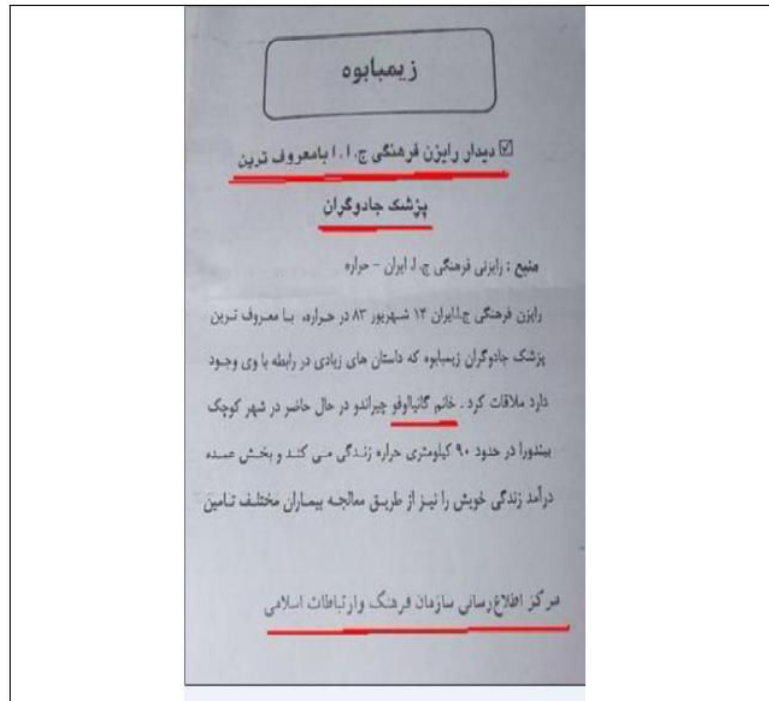 زیمبابوه
☑ دیدار رایزن فرهنگی ج. ا. ا بامعروف ترین
پزشک جادوگران
منبع : رایزنی فرهنگی ج. ا. ایران - حراره
رایزن فرهنگی ج.ا.ایران ۱۴ شهریور ۸۳ در حراره، با معروف ترین
پزشک جادوگران زیمبابوه که داستان های زیادی در رابطه با وی وجود
دارد ملاقات کرد . خانم گانیااوفو چیراندو در حال حاضر در شهر کوچک
بیندورا در حدود ۹۰ کیلومتری حراره زندگی می کند و بخش عمده
درآمد زندگی خویش را نیز از طریق معالجه بیماران مختلف تامین
مرکز اطلاع رسانی سازمان فرهنگ وارتباطات اسلامی